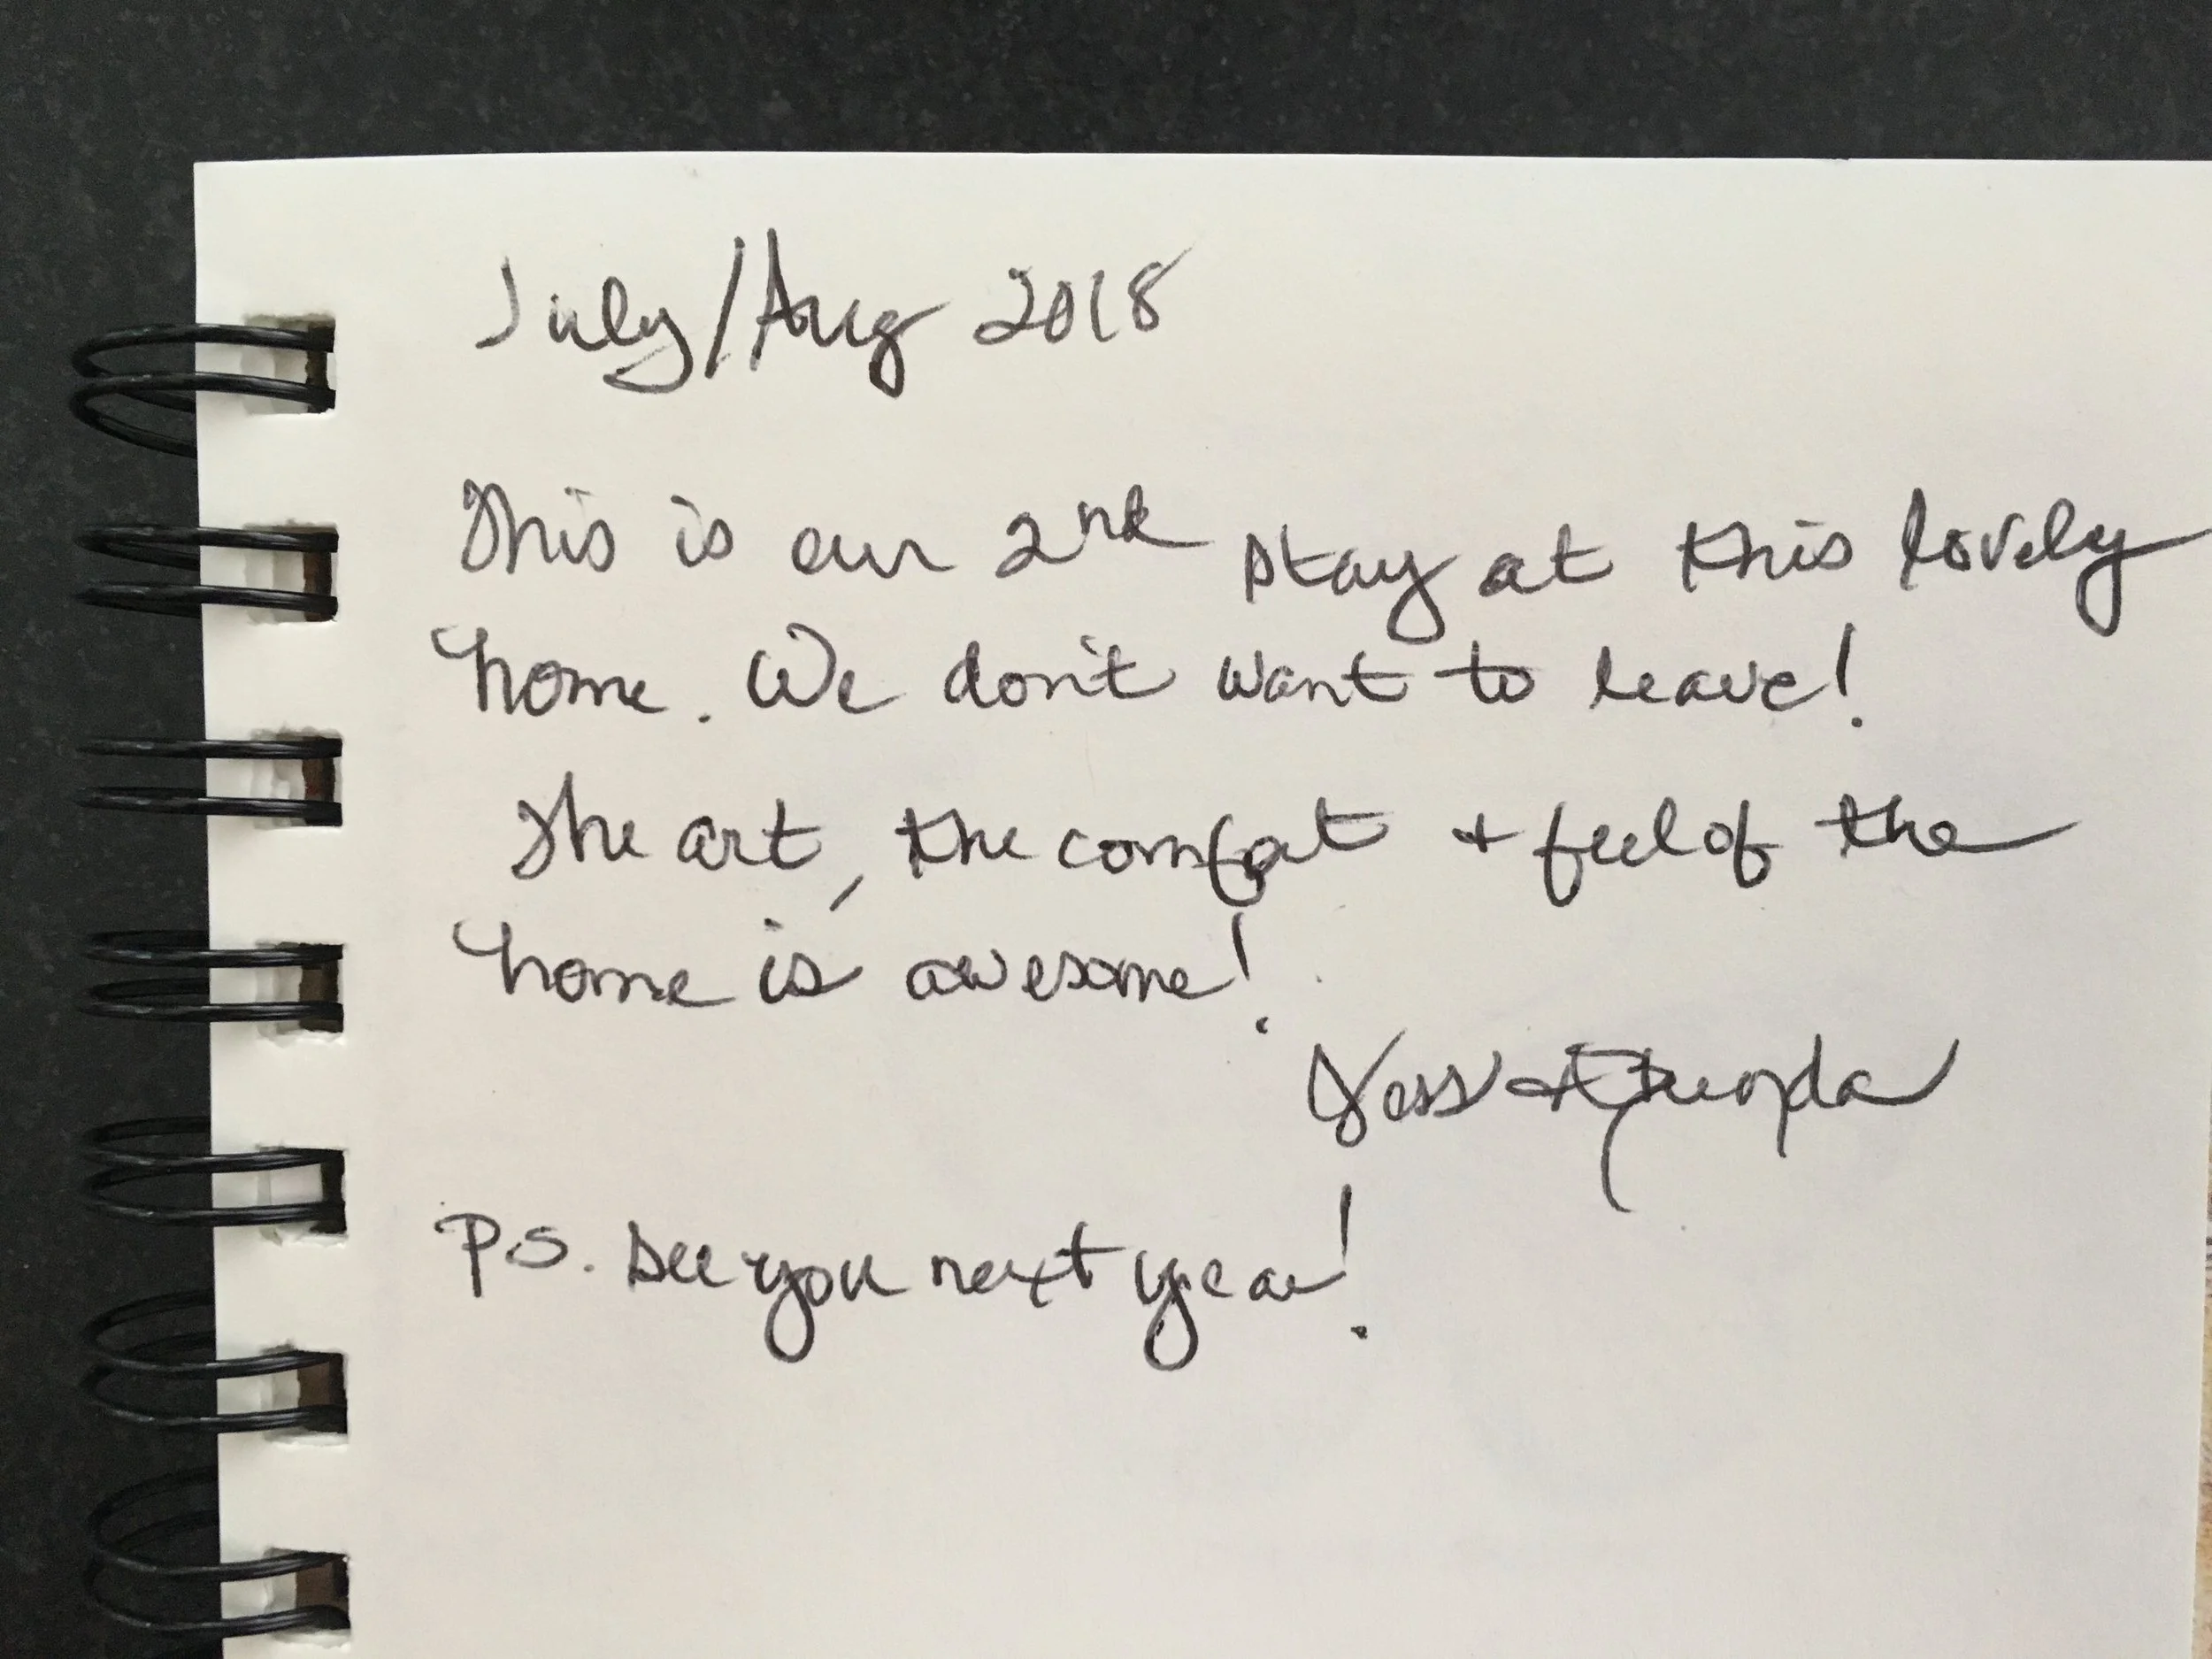 July/Aug 2018
This is our 2nd stay at this lovely
home. We don't want to leave!
The art, the comfort + feel of the
home is awesome!
P.S. See you next year!